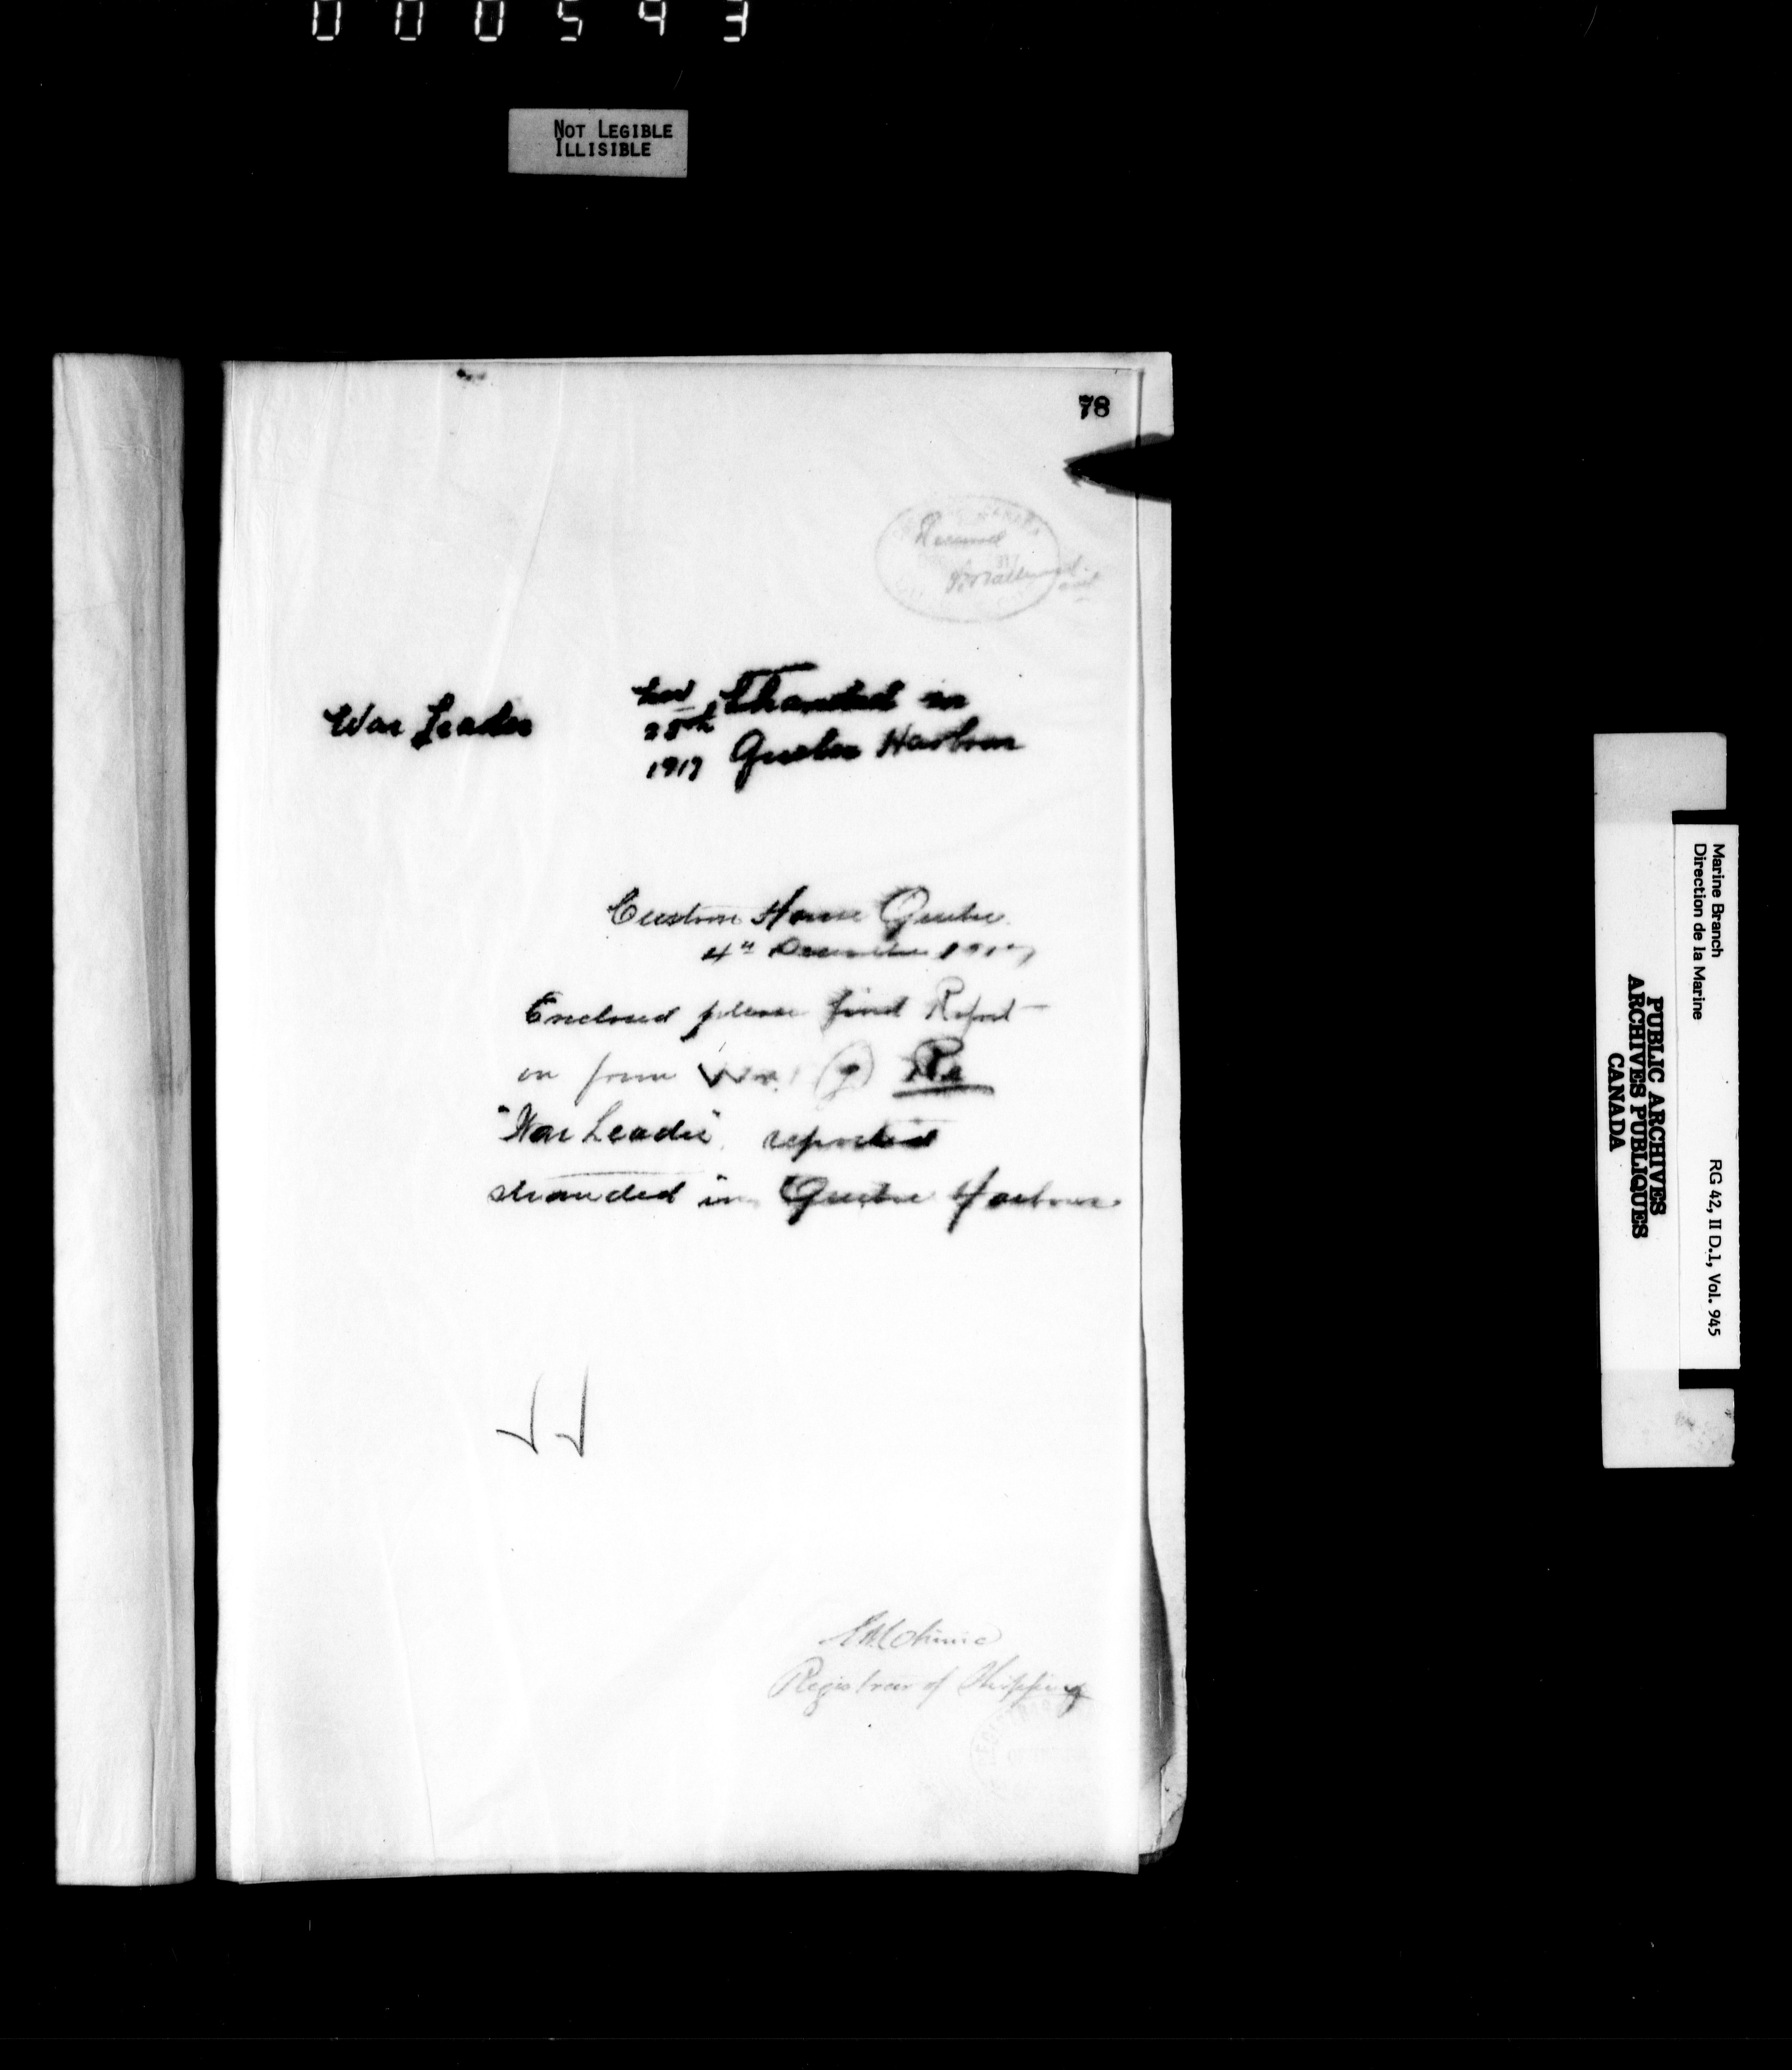 000543
NOT LEGIBLE
ILLISIBLE
78
Received
War Leader
Nov Stranded in
28th
1917 Quebec Harbour
Custom House Quebec
4th December 1917
Enclosed please find Report
on form Wr. 1 (g) Re
"War Leader" reported
stranded in Quebec Harbour
Registrar of Shipping
Marine Branch
Direction de la Marine
RG 42, II D.1, Vol. 945
PUBLIC ARCHIVES
ARCHIVES PUBLIQUES
CANADA